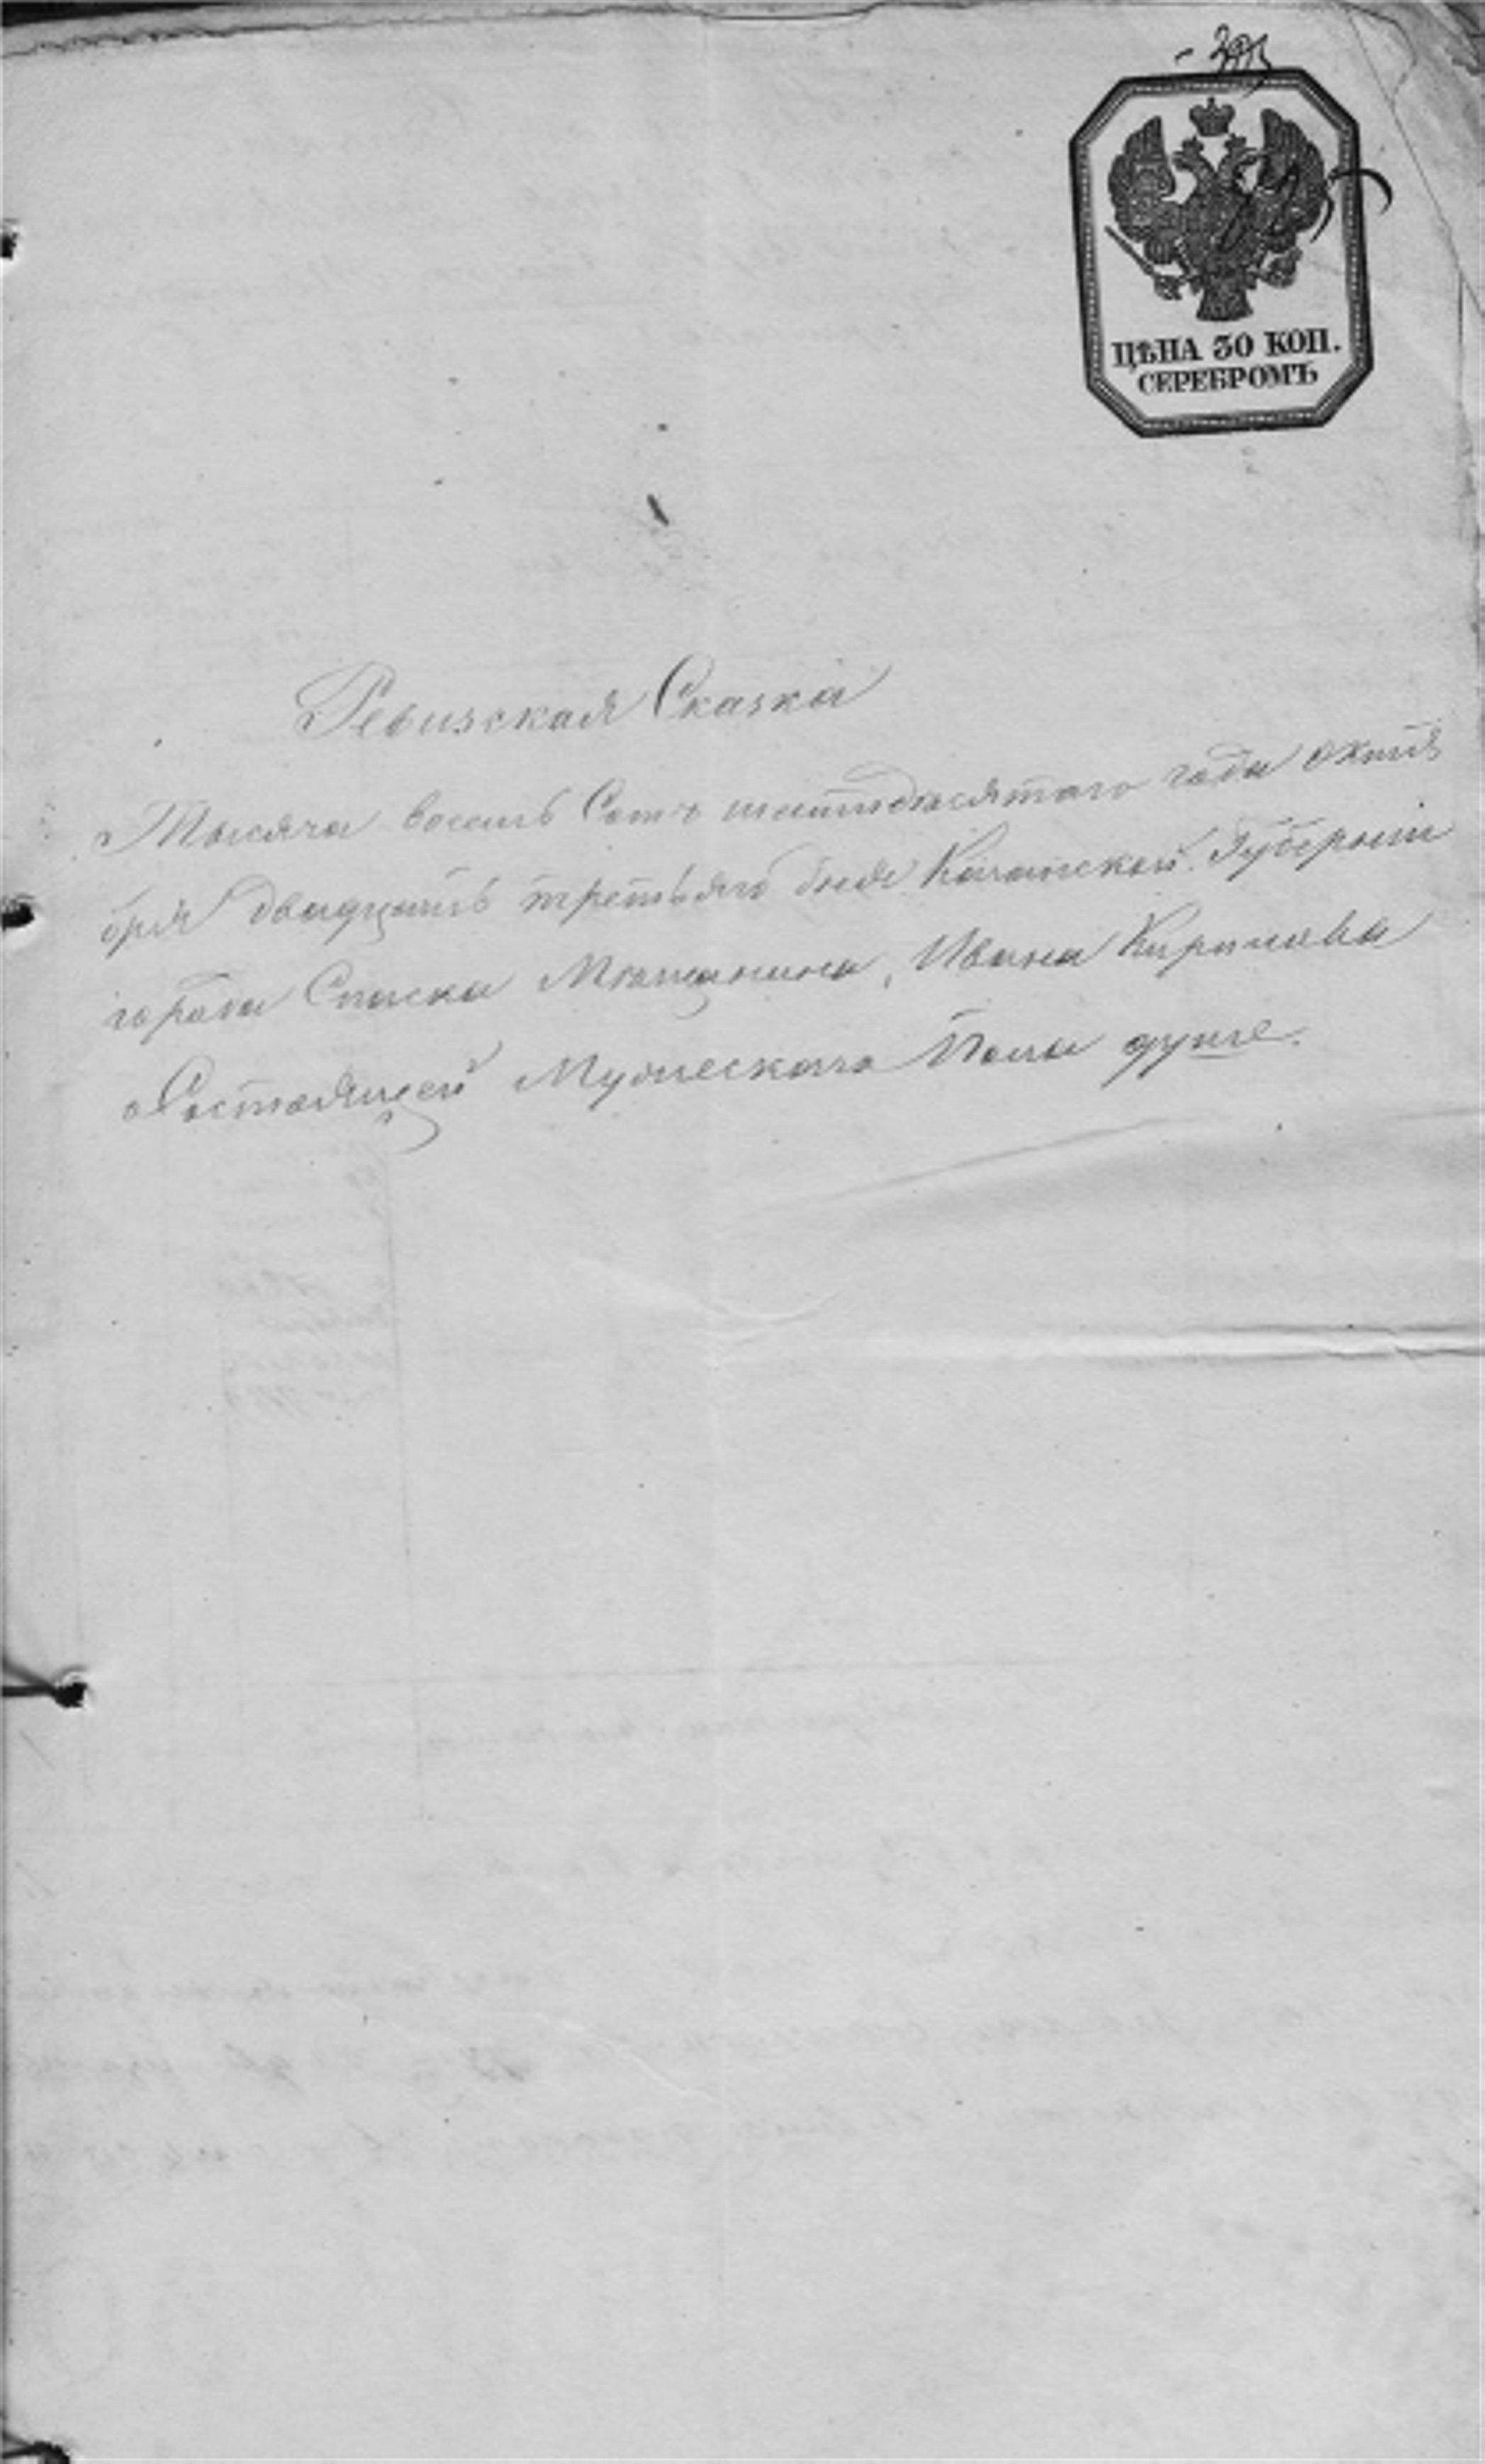 ЦѢНА 30 КОП.
СЕРЕБРОМЪ
Ревизская Сказка
Тысяча восемь Сотъ шестидесятаго года октя
бря двадцать третьяго дня Казанской Губернии
города Спаска Мещанина, Ивана Кирилова
о Состоящей Мужескаго Пола душе.